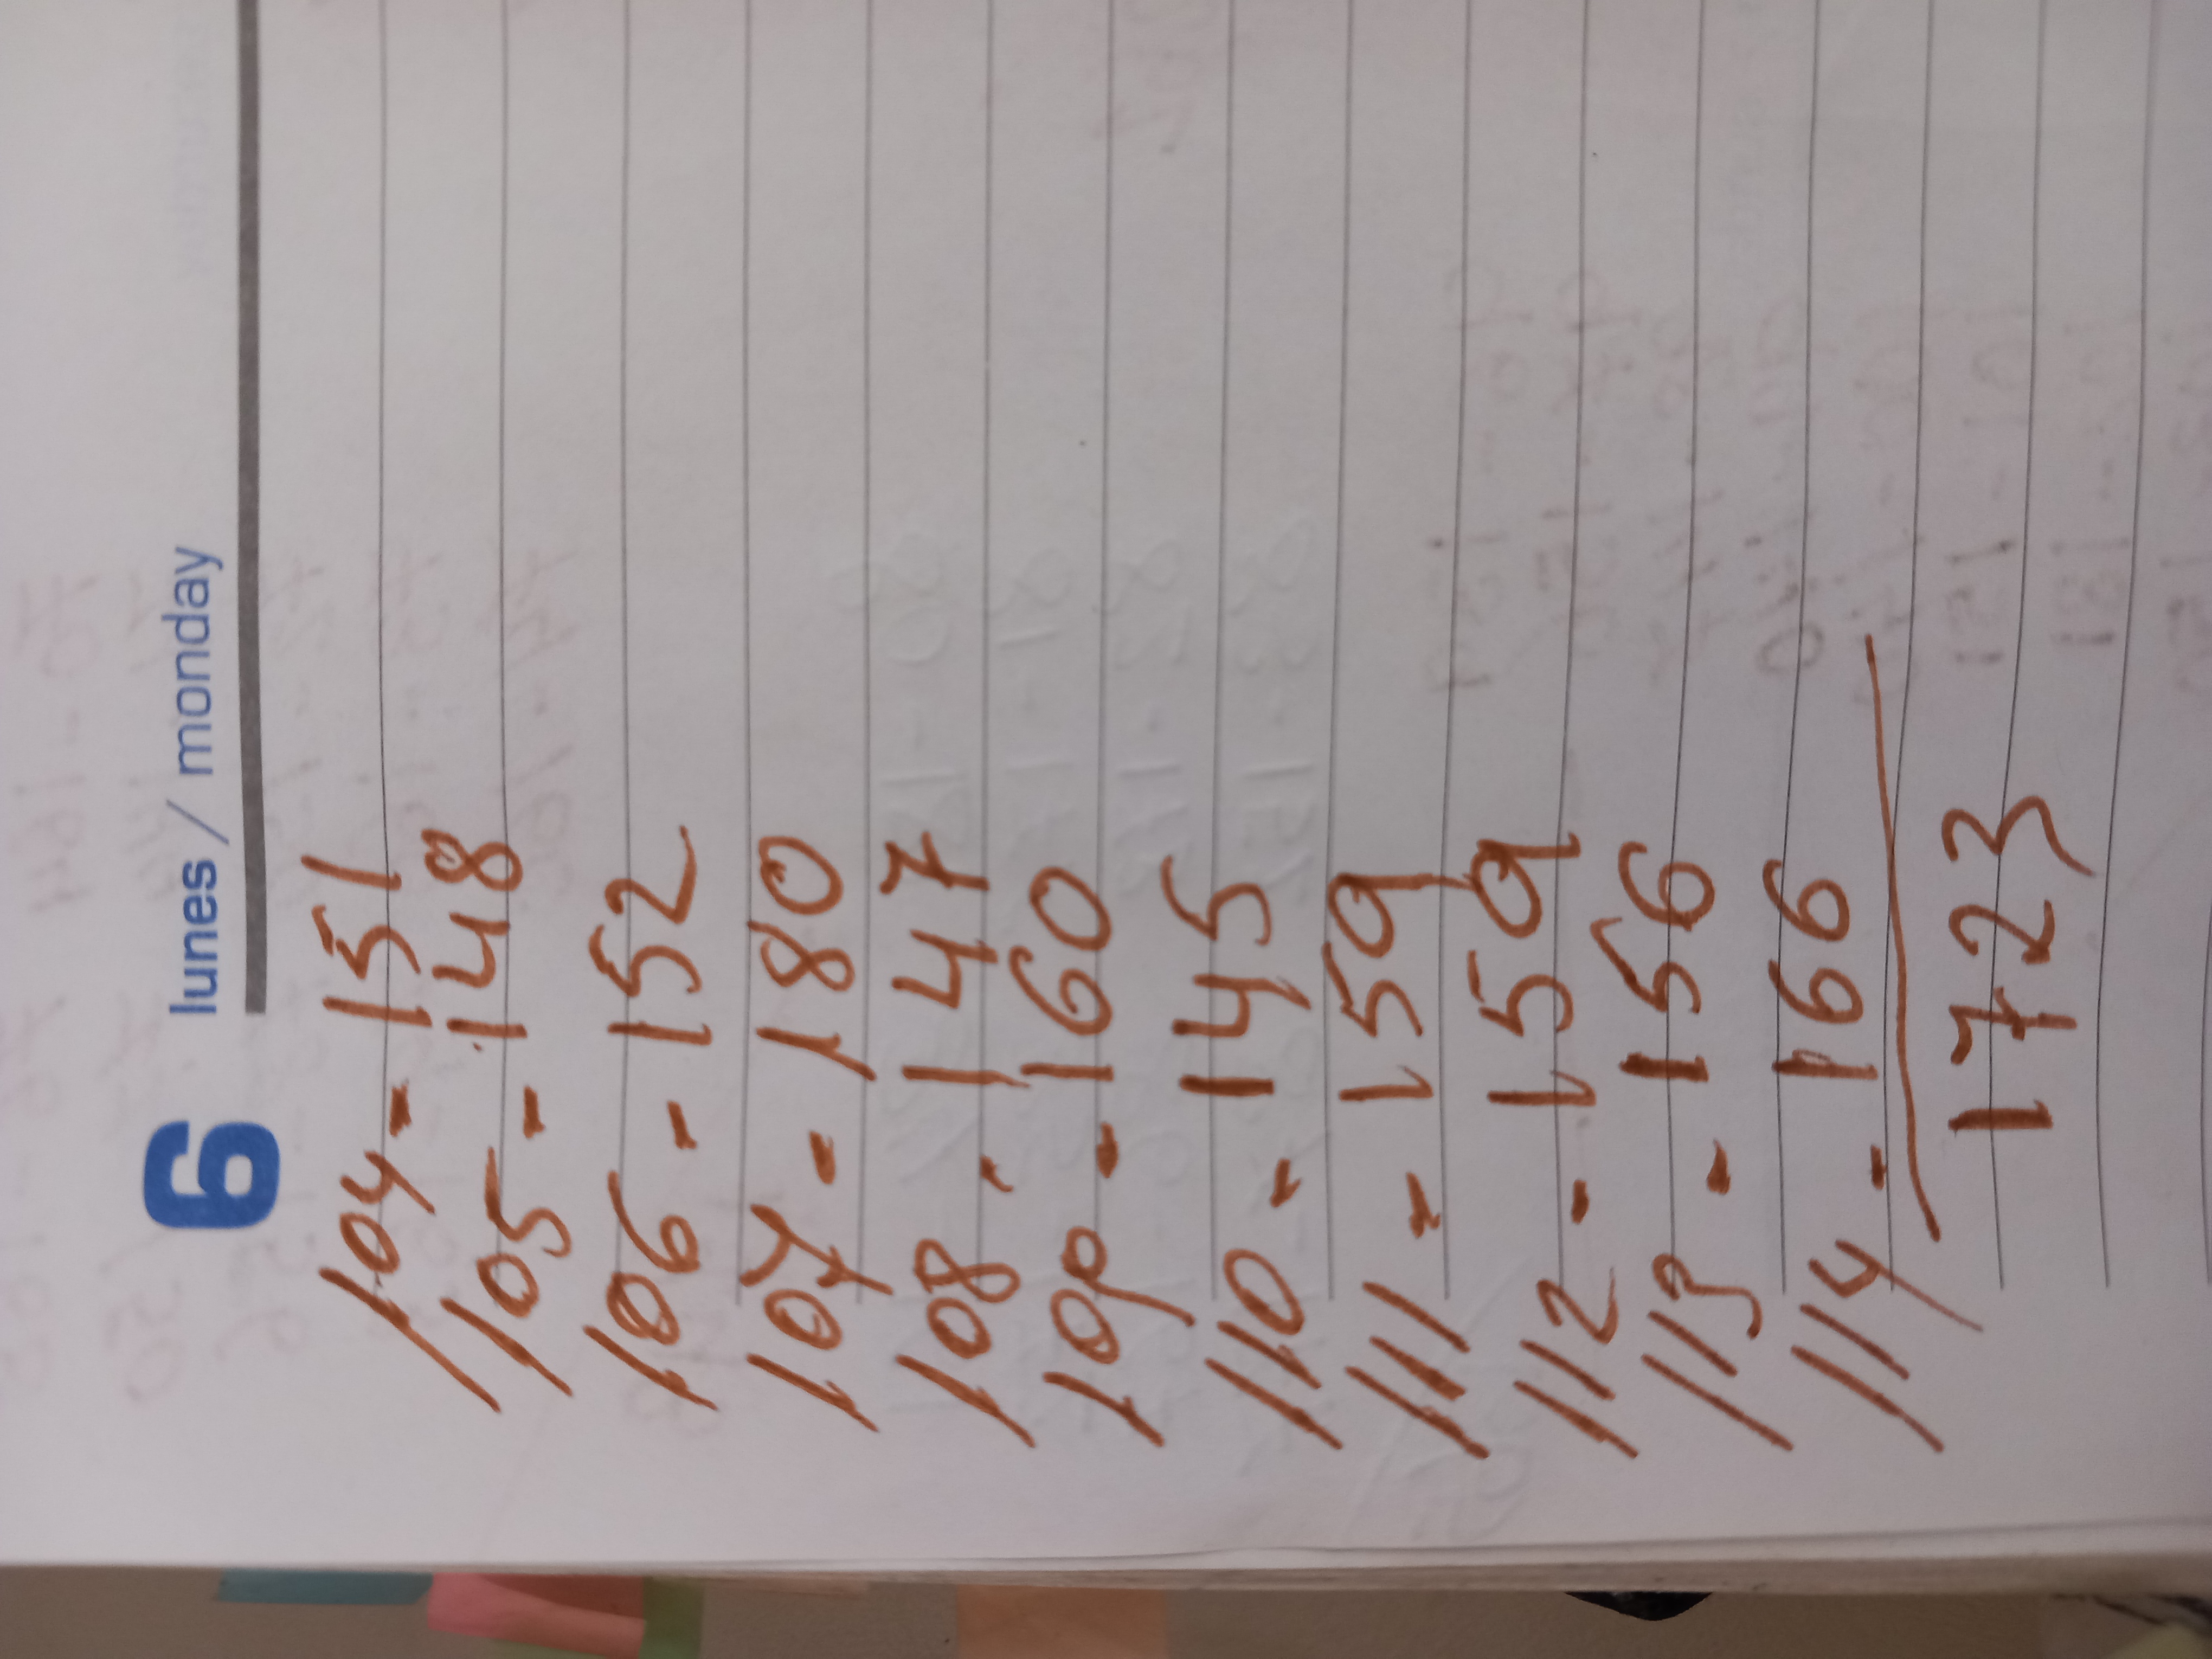 6 lunes / monday
104 - 151
105 - 148
106 - 152
107 - 180
108 - 147
109 - 160
110 - 145
111 - 159
112 - 159
113 - 156
114 - 166
1723